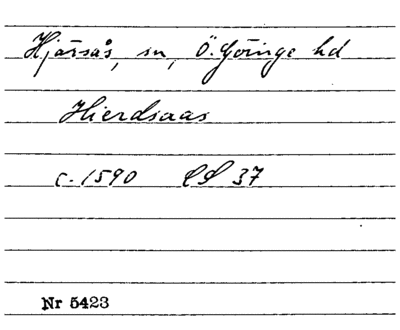 Hjärsås, sn, Ö. Göinge hd
Hierdsaas
c. 1590 CS 37
Nr 5423